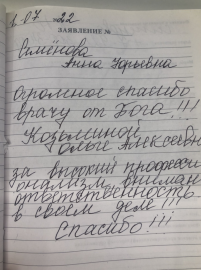 1.07 22
ЗАЯВЛЕНИЕ №
Семёнова
Анна Юрьевна
Огромное спасибо
врачу от Бога!!!
Козьминой
Ольге Алексеевне
за высокий професси
онализм, вниман
ответственность
в своем деле!!!
Спасибо!!!